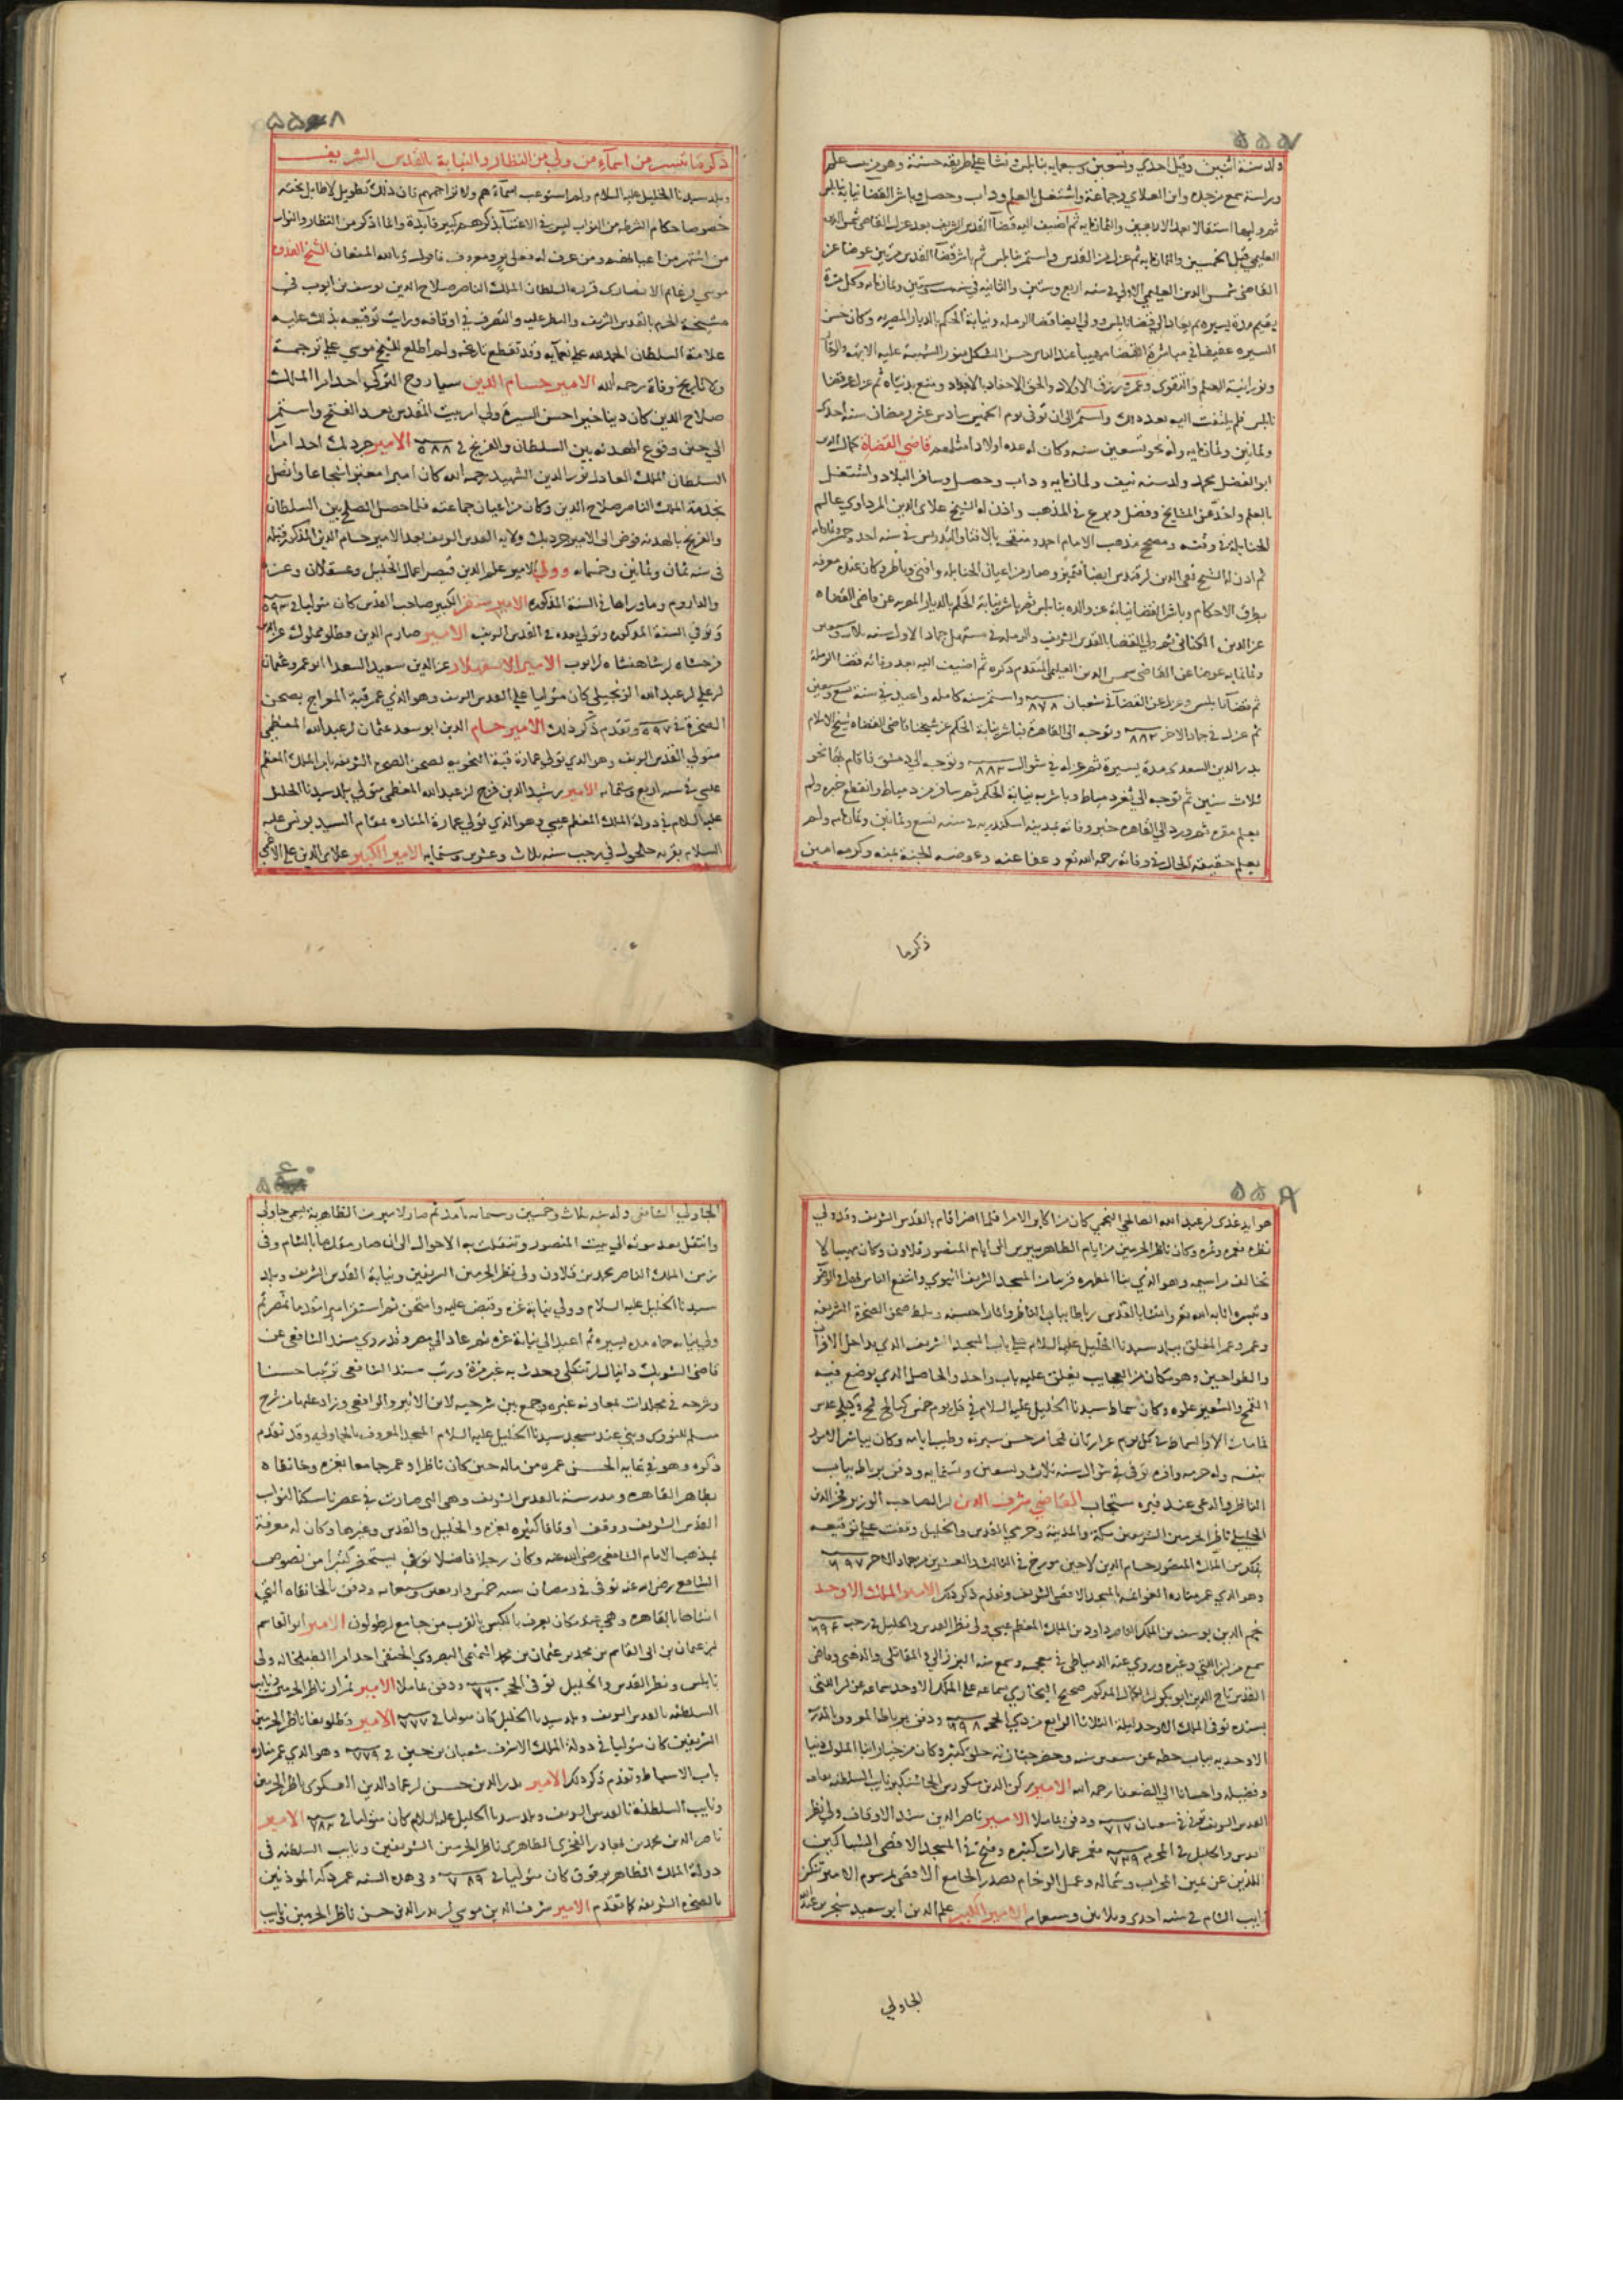 ٥٥٧
ولد سنة اثنين وقيل احدي وتسعين وسبعمايه بنابلس ونشا علي طريقه حسنة وهو من بيت علم
ورياسة سمع من جده وابن العلاي وجماعة واشتغل بالعلم وداب وحصل وباشر القضا نيابة بنابلس
ثم وليها استقلالا بعد الاربعين والثمانمايه ثم اضيف اليه قضآ القدس الشريف بعد عزل القاضي شمس الدين
العليمي قبل الخمسين والثمانمايه ثم عزل من القدس واستمر بنابلس ثم باشر قضآ القدس مرتين عوضا عن
القاضي شمس الدين العليمي الاولي في سنه اربع وستين والثانيه في سنه وستين وثمانمايه وكل مرة
يقيم مدة يسيره ثم يعاد الي قضا نابلس وولي ايضا قضا الرمله ونيابة الحكم بالديار المصريه وكان حسن
السيره عفيفا في مباشرة القضا مهيبا عند الناس حسن الشكل منور الشيبة عليه الابهة والوقآ
ونورانية العلم والتقوي وعمر ورزق الاولاد والحق الاحفاد بالاجداد ومتع بدنياه ثم عزل عن قضا
نابلس فلم يلتفت اليه بعد ذلك واستمر الي ان توفي يوم الخميس سادس عشر رمضان سنه احدي
وثمانين وثمانمايه وله نحو تسعين سنه وكان له عده اولاد امثلهم قاضي القضاة كمال الدين
ابو الفضل محمد ولد سنه نيف وثمانمايه وداب وحصل وسافر البلاد واشتغل
بالعلم واخذ عن المشايخ وفضل وبرع في المذهب واذن له الشيخ علاي الدين المرداوي عالم
الحنابله في وقته ومصحح مذهب الامام احمد ومنقحه بالافتا والتدريس في سنه احد
ثم اذن له الشيخ تقي الدين قندس ايضا فتميز وصار من اعيان الحنابله وافتي وناظر وكان عنده معرفه
بطرق الاحكام وباشر القضا نيابة عن والده بنابلس ثم باشر نيابة الحكم بالديار المصريه عن قاضي القضاه
عز الدين الكناني ثم ولي القضا بالقدس الشريف والرمله في مستهل جماد الاول سنه
وثمانمايه عوضا عن القاضي شمس الدين العليمي المتقدم ذكره ثم اضيف اليه بعد وفاته قضا الرملة
ثم قضآ نابلس وعزل عن القضآ في شعبان ٨٧٨ واستمر سنه كامله واعيد في سنة تسع وسبعين
ثم عزل في جماد الاخر ٨٨٢ وتوجه الي القاهرة فباشر نيابة الحكم عن شيخنا قاضي القضاه شيخ الاسلام
بدر الدين السعدي مدة يسيرة ثم عزله في شوال ٨٨٣ وتوجه الي دمشق فاقام بها نحو
ثلاث سنين ثم توجه الي ثغر دمياط وباشر به نيابة الحكم ثم سافر من دمياط وانقطع خبره ولم
يعلم مقره ثم ورد الي القاهره خبر وفاته بمدينه اسكندريه في سنه تسع وثمانين وثمانمايه ولم
يعلم حقيقه الحال في وفاته رحمه الله تع وعفا عنه وعوضه الجنة بمنه وكرمه امين
ذكرما
٥٥٨
ذكر ما تيسر من اسمآء من ولي من النظار والنيابة بالقدس الشريف
وبلد سيدنا الخليل عليه السلام ولم استوعب اسمآءهم ولا تراجمهم فان ذلك تطويل لا طايل تحته
خصوصا حكام الشرطه من النواب ليس في الاعتنآ بذكرهم كبير فآيدة وانما اذكر من النظار والنواب
من اشتهر من اعيانهم ومن عرف له فعل بر ومعروف فاقول وبالله المستعان الشيخ القدوة
موسي غانم الانصاري قرره السلطان الملك الناصر صلاح الدين يوسف بن ايوب في
مشيخة الحرم بالقدس الشريف والنظر عليه والتصرف في اوقافه ورايت توقيعه بذلك عليه
علامة السلطان الحمد لله علي نعمآيه وقد تقطع تاريخه ولم اطلع للشيخ موسي علي ترجمة
ولا تاريخ وفاة رحمه الله الامير حسام الدين سياروخ التركي احد امرا الملك
صلاح الدين كان دينا خيرا حسن السيرة ولي امر بيت المقدس بعد الفتح واستمر
الي حين وقوع الهدنه بين السلطان والفرنج في ٥٨٨ الامير جرديك احد امرا
السلطان الملك العادل نور الدين الشهيد رحمه الله كان اميرا معتبرا شجاعا واتصل
بخدمة الملك الناصر صلاح الدين وكان من اعيان جماعته فلما حصل الصلح بين السلطان
والفرنج بالهدنه فوض الي الامير جرديك ولايه القدس الشريف بعد الامير حسام الدين المذكور قبله
في سنه ثمان وثمانين وخمسمايه وولي الامير علم الدين قيصر اعمال الخليل وعسقلان وغزه
والداروم وما وراها في السنة المذكوره الامير سنقر الكبير صاحب القدس كان متوليا في ٥٩٣
وتوفي السنة المذكوره وتولي بعده في القدس الشريف الامير صارم الدين قطلو مملوك عز الدين
فرخشاه شاهنشاه ايوب الامير الاسفهسلار عز الدين سعيد السعدا ابو عمرو عثمان
علي عبد الله الزنجيلي كان متوليا علي القدس الشريف وهو الذي عمر قبة المعراج بصحن
الصخرة في ٥٩٧ وتقدم ذكر ذلك الامير حسام الدين ابو سعد عثمان عبد الله المعظمي
متولي القدس الشريف وهو الذي تولي عمارة قبة النحويه بصحن الصخرة الشريفه بامر الملك المعظم
عيسي في سنه اربع وستمايه الامير رشيد الدين فرج عبد الله المعظمي متولي بلد سيدنا الخليل
عليه السلام في دولة الملك المعظم عيسي وهو الذي تولي عمارة المناره بمقام السيد يونس عليه
السلام بقريه حلحول في رجب سنه ثلاث وعشرين وستمايه الامير الكبير علاي الدين علي الاعمي
٥٥٩
هو ايدغدي عبد الله الصالحي النجمي كان من اكابر الامرا فلما اضر اقام بالقدس الشريف وقد ولي
نظره فعمره وثمره وكان ناظر الحرمين من ايام الظاهر بيبرس الي ايام المنصور قلاون وكان مهيبا لا
تخالف مراسيمه وهو الذي بنا المطهره قريبا من المسجد الشريف النبوي وانتفع الناس بها في الوضوء
وتيسره اثابه الله تع وانشا بالقدس رباطا بباب الناظر واثارا حسنه وبلط صحن الصخرة الشريفه
وعمر المغلق ببلد سيدنا الخليل عليه السلام علي باب المسجد الشريف الذي بداخل الافران
والطواحين وهو مكان من العجايب يغلق عليه باب واحد والحاصل الذي يوضع فيه
القمح والشعير علوه وكان سماط سيدنا الخليل عليه السلام في كل يوم خمس
في كل يوم غرارتان قمحا من حسن سيرته وطيب ايامه وكان يباشر الامور
بنفسه وله حرمه وافره توفي في شوال سنه ثلاث وتسعين وستمايه ودفن برباطه بباب
الناظر والدعي عند قبره مستجاب القاضي شرف الدين الصاحب الوزير فخر الدين
الخليلي ناظر الحرمين الشريفين مكة والمدينة وحرمي القدس والخليل وقفت علي توقيعه
بذلك من الملك المنصور حسام الدين لاجين مورخ في الثالث والعشرين من جماد الاخر ٦٩٧
وهو الذي عمر مناره الغوانمه بالمسجد الاقصي الشريف وتقدم ذكر ذلك الامير الملك الاوحد
نجم الدين يوسف بن الملك الناصر داود بن الملك المعظم عيسي ولي نظر القدس والخليل في رجب ٦٩٤
سمع من ابن اللتي وغيره وروي عنه الدمياطي في معجمه وسمع منه البرزالي والمقاتلي والذهبي وقاضي
القدس تاج الدين ابو بكر المذكور صحيح البخاري بسماعه علي الملك الاوحد سماعه عن ابن اللتي
بسنده توفي الملك الاوحد ليلة الثلاثا الرابع من ذي الحجه ٦٩٨ ودفن برباطه المعروف بالمدرسه
الاوحديه بباب حطه عن سبعين سنه وحضر جنازته خلق كثير وكان من خيار ابنا الملوك دينا
وفضيله واحسانا الي الضعفا رحمه الله الامير ركن الدين منكورس الجاشنكير نايب السلطنه بقلعه
القدس الشريف توفي في شعبان ٧١٧ ودفن بماملا الامير ناصر الدين مشد الاوقاف ولي نظر
القدس والخليل في المحرم فعمر عمارات كثيره وفتح في المسجد الاقصي الشباكين
اللذين عن يمين المحراب وشماله وعمل الرخام بصدر الجامع الاقصي بمرسوم الامير تنكز
نايب الشام في سنه احدي وثلاثين وسبعمايه الامير الكبير علم الدين ابو سعيد سنجر بن عبد الله
الجاولي
الجاولي الشافعي ولد سنه ثلاث وخمسين وستمايه بآمد ثم صار لامير من الظاهرية يسمي جاولي
وانتقل بعد موته الي بيت المنصور وتنقلت به الاحوال الي ان صار مقدما بالشام وفي
زمن الملك الناصر محمد بن قلاون ولي نظر الحرمين الشريفين ونيابة القدس الشريف وبلد
سيدنا الخليل عليه السلام وولي نيابة غزه وقبض عليه وامتحن ثم استقر اميرا مقدما بمصر ثم
ولي نيابه حماه مده يسيره ثم اعيد الي نيابة غزه ثم عاد الي مصر وقد روي مسند الشافعي عن
قاضي الشوبك دانيال منكلي وحدث به غير مرة ورتب مسند الشافعي ترتيبا حسنا
وشرحه في مجلدات بمعاونه غيره وجمع بين شرحيه لابن الاثير والرافعي وزاد عليهما من شرح
مسلم للنووي وبني عند مسجد سيدنا الخليل عليه السلام المسجد المعروف بالجاوليه وقد تقدم
ذكره وهو في غايه الحسن عمره من ماله حين كان ناظرا وعمر جامعا بغزه وخانقاه
بظاهر القاهره ومدرسة بالقدس الشريف وهي التي صارت في عصرنا سكنا لنواب
القدس الشريف ووقف اوقافا كثيره بغزه والخليل والقدس وغيرها وكان له معرفة
بمذهب الامام الشافعي رضي الله عنه وكان رجلا فاضلا يستحضر كثيرا من نصوص
الشافعي رضي الله عنه توفي في رمضان سنه خمس واربعين وسبعمايه ودفن بالخانقاه التي
انشاها بالقاهره وهي بمكان يعرف بالكبش بالقرب من جامع طولون الامير ابو القاسم
بن عثمان بن ابي القاسم بن محمد بن عثمان بن محمد التميمي البصروي الحنفي احد امرا الطبلخانه ولي
نابلس ونظر القدس والخليل توفي في الحجه ٧٦٠ ودفن بماملا الامير تمراز ناظر الحرمين ونايب
السلطنه بالقدس الشريف وبلد سيدنا الخليل كان متوليا في ٧٧٧ الامير قطلوبغا ناظر الحرمين
الشريفين كان متوليا في دولة الملك الاشرف شعبان بن حسين في ٧٧٩ وهو الذي عمر مناره
باب الاسباط وتقدم ذكر ذلك الامير بدر الدين حسن عماد الدين العسكري ناظر الحرمين
ونايب السلطنة بالقدس الشريف وبلد سيدنا الخليل عليه السلام كان متوليا في ٧٨٢ الامير
ناصر الدين محمد بن بهادر الفخري الظاهري ناظر الحرمين الشريفين ونايب السلطنه في
دولة الملك الظاهر برقوق كان متوليا في ٧٨٩ وفي هذه السنه عمر دكه الموذنين
بالصخره الشريفه كما تقدم الامير شرف الدين موسي بدر الدين حسن ناظر الحرمين نايب